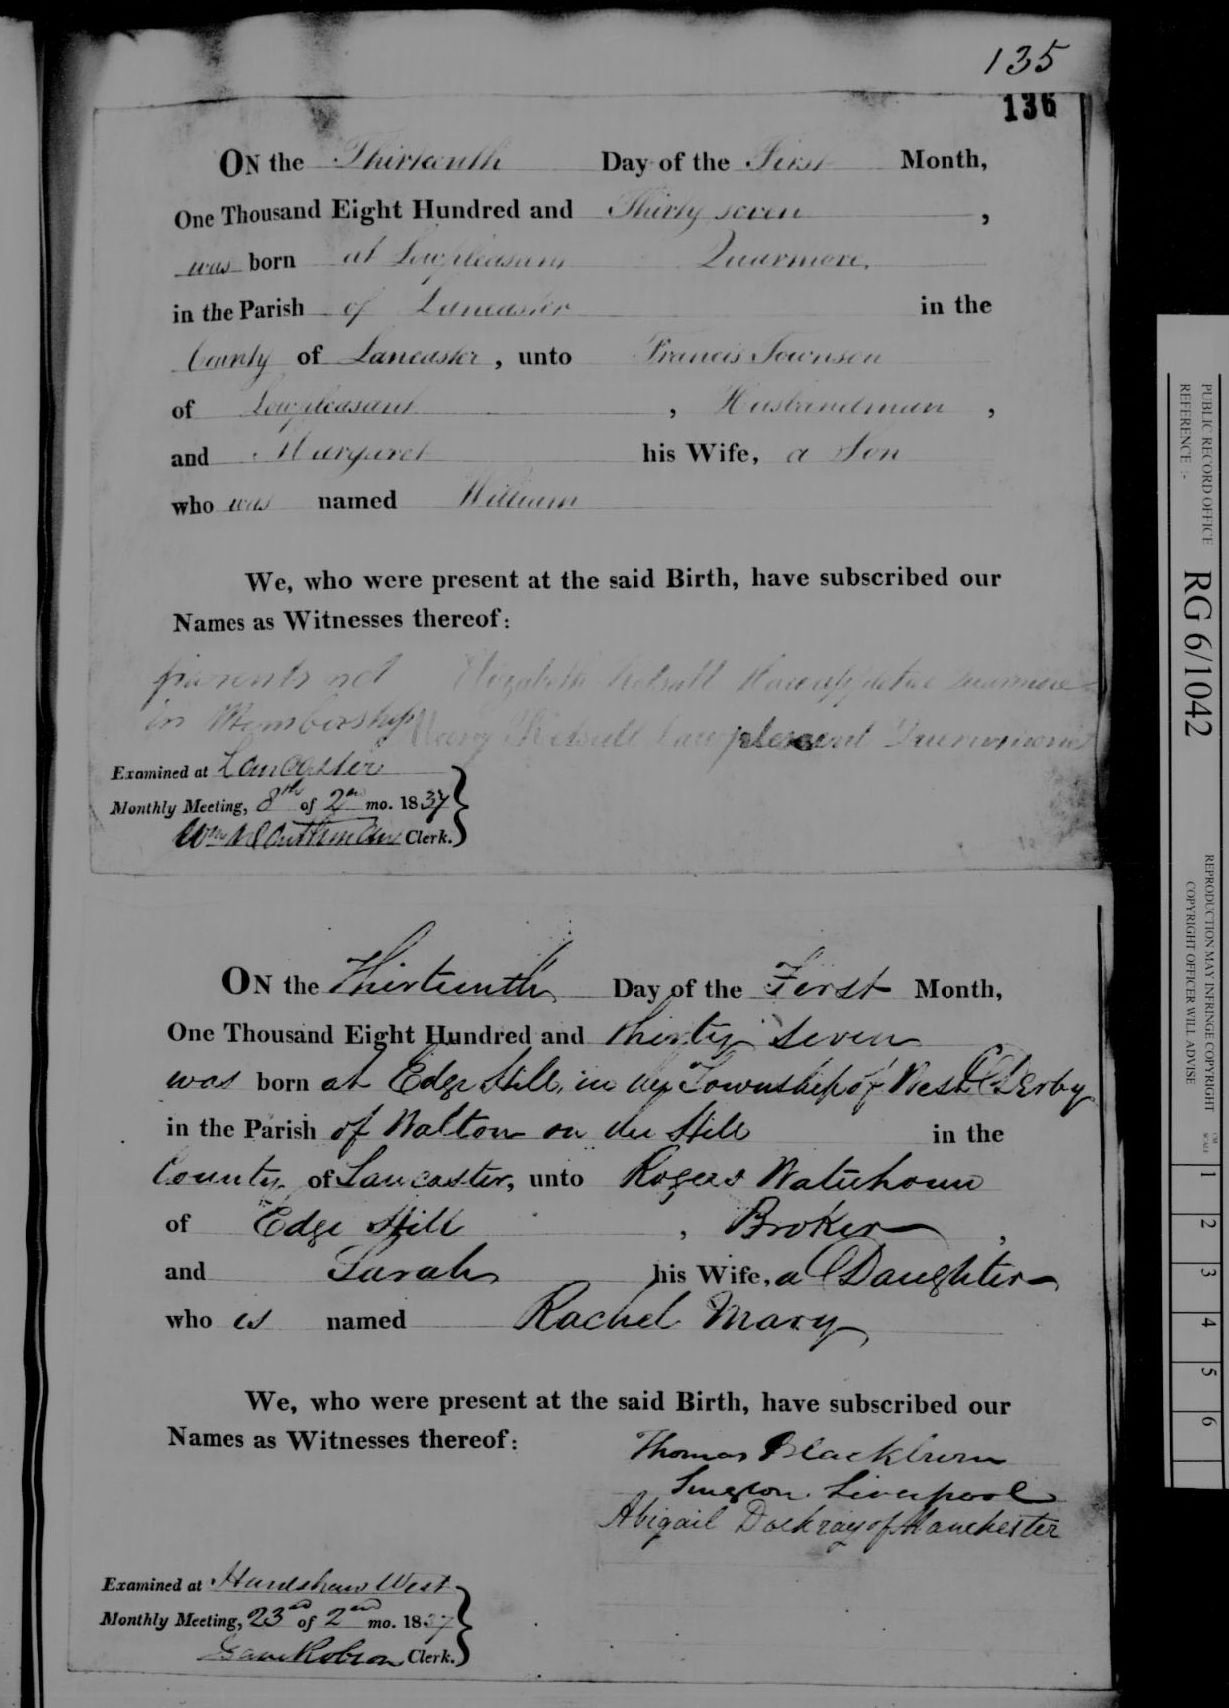 135
136
ON the Thirteenth Day of the First Month,
One Thousand Eight Hundred and Thirty seven ,
was born at Lowpleasant Quarmore
in the Parish of Lancaster in the
County of Lancaster, unto Francis Townson
of Lowpleasant , Husbandman ,
and Margaret his Wife, a Son
who was named William
We, who were present at the said Birth, have subscribed our
Names as Witnesses thereof:
parents not Elizabeth Quarmore
in Membership Mary
Examined at Lancaster
Monthly Meeting, 8th of 2nd mo. 1837
Wm Clerk.
ON the Thirteenth Day of the First Month,
One Thousand Eight Hundred and thirty seven
was born at Edge Hill, in the Township of West Derby
in the Parish of Walton on the Hill in the
County of Lancaster, unto Rogers Waterhouse
of Edge Hill , Broker ,
and Sarah his Wife, a Daughter
who is named Rachel Mary
We, who were present at the said Birth, have subscribed our
Names as Witnesses thereof:
Thomas Blackburn
Surgeon. Liverpool
Abigail Dockray of Manchester
Examined at Hardshaw West
Monthly Meeting, 23rd of 2nd mo. 1837
Isaac Robson Clerk.
PUBLIC RECORD OFFICE
REFERENCE :-
RG 6/1042
REPRODUCTION MAY INFRINGE COPYRIGHT
COPYRIGHT OFFICER WILL ADVISE
1 2 3 4 5 6